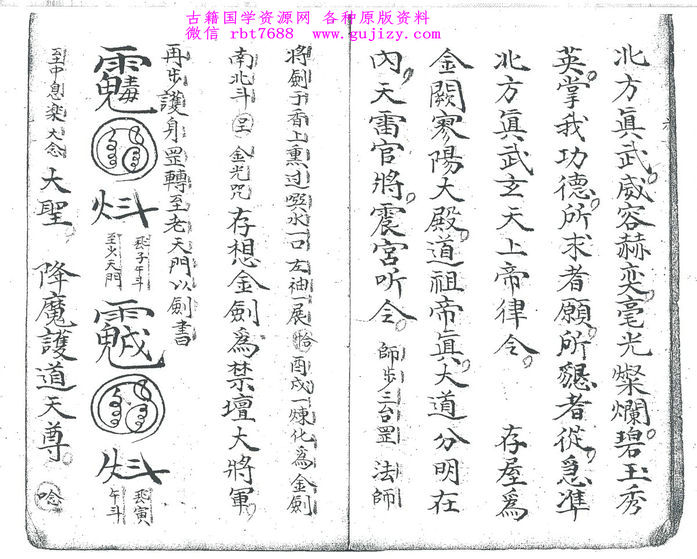 古籍国学资源网 各种原版资料
微信 rbt7688 www.gujizy.com
北方真武威容赫奕毫光燦爛碧玉秀
英掌我功德所求者願所懇者從急準
北方真武玄天上帝律令 存屋為
金闕寥陽大殿道祖帝真大道分明在
內天雷官將震宮听令 師步三台罡 法師
將劍于香上熏过噀水一口左袖一展 酉戌一煉化為金劍
南北斗 金光咒存想金劍為禁壇大將軍
再步護身罡轉至老天門以劍書
斗 子午斗
至火天門
斗 寅
午斗
至中 大念 大聖 降魔護道天尊 唸